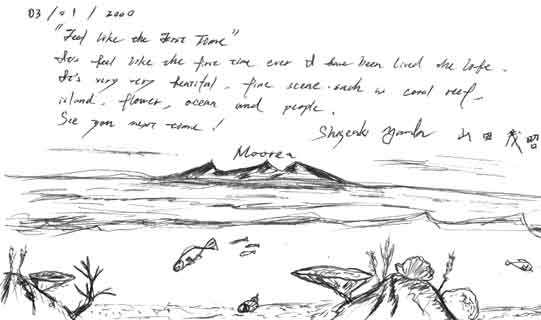 03 / 01 / 2000
"Feel Like the First Time"
It's feel like the first time ever I have been lived the Life.
It's very very beautiful, fine scene such as coral reef,
island, flower, ocean and people.
See you next time!
山田茂昭
Moorea